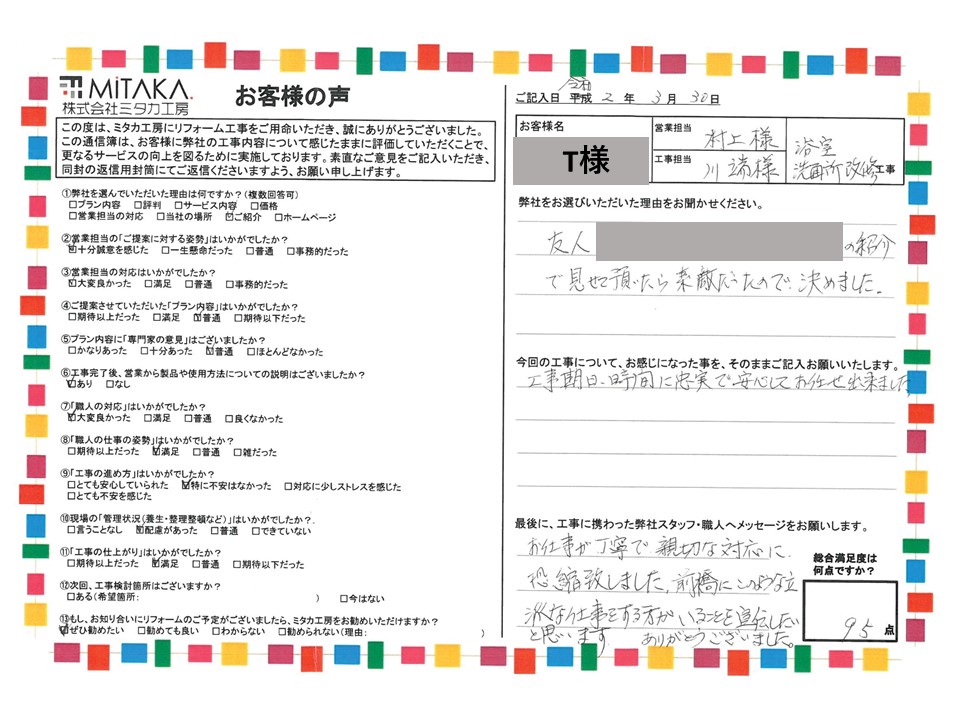 MiTAKA.
株式会社ミタカ工房
お客様の声
この度は、ミタカ工房にリフォーム工事をご用命いただき、誠にありがとうございました。
この通信簿は、お客様に弊社の工事内容について感じたままに評価していただくことで、
更なるサービスの向上を図るために実施しております。素直なご意見をご記入いただき、
同封の返信用封筒にてご返信くださいますよう、お願い申し上げます。
①弊社を選んでいただいた理由は何ですか?(複数回答可)
□プラン内容 □評判 □サービス内容 □価格
□営業担当の対応 □当社の場所 ☑ご紹介 □ホームページ
②営業担当の「ご提案に対する姿勢」はいかがでしたか?
☑十分誠意を感じた □一生懸命だった □普通 □事務的だった
③営業担当の対応はいかがでしたか?
☑大変良かった □満足 □普通 □事務的だった
④ご提案させていただいた「プラン内容」はいかがでしたか?
□期待以上だった □満足 ☑普通 □期待以下だった
⑤プラン内容に「専門家の意見」はございましたか?
□かなりあった □十分あった ☑普通 □ほとんどなかった
⑥工事完了後、営業から製品や使用方法についての説明はございましたか?
☑あり □なし
⑦「職人の対応」はいかがでしたか?
☑大変良かった □満足 □普通 □良くなかった
⑧「職人の仕事の姿勢」はいかがでしたか?
□期待以上だった ☑満足 □普通 □雑だった
⑨「工事の進め方」はいかがでしたか?
□とても安心していられた ☑特に不安はなかった □対応に少しストレスを感じた
□とても不安を感じた
⑩現場の「管理状況(養生・整理整頓など)」はいかがでしたか?
□言うことなし ☑配慮があった □普通 □できていない
⑪「工事の仕上がり」はいかがでしたか?
□期待以上だった ☑満足 □普通 □期待以下だった
⑫次回、工事検討箇所はございますか?
□ある(希望箇所: ) □今はない
⑬もし、お知り合いにリフォームのご予定がございましたら、ミタカ工房をお勧めいただけますか?
☑ぜひ勧めたい □勧めても良い □わからない □勧められない(理由: )
令和
ご記入日 平成 2 年 3 月 30 日
お客様名
T様
営業担当 村上様
工事担当 川端様
浴室
洗面所改修工事
弊社をお選びいただいた理由をお聞かせください。
友人 の紹介
で見せて頂いたら素敵だったので、決めました。
今回の工事について、お感じになった事を、そのままご記入お願いいたします。
工事期日、時間に忠実で安心してお任せ出来ました
最後に、工事に携わった弊社スタッフ・職人へメッセージをお願いします。
お仕事が丁寧で親切な対応に
恐縮致しました。前橋にこのような立
派な仕事をする方がいることを宣伝したい
と思います ありがとうございました。
総合満足度は
何点ですか?
95 点